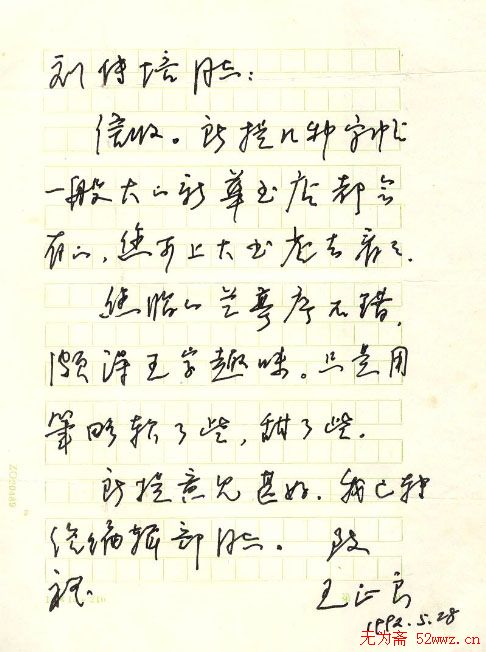 刘传培同志:
信收。所提几种字帖
一般大的新华书店都会
有的,您可上大书店去看看.
您临的兰亭序不错,
颇得王字趣味。只是用
笔略软了些,甜了些.
所提意见甚好.我已转
给编辑部同志。 致
礼
王正良
1992.5.28
无为斋 52wwz.cn